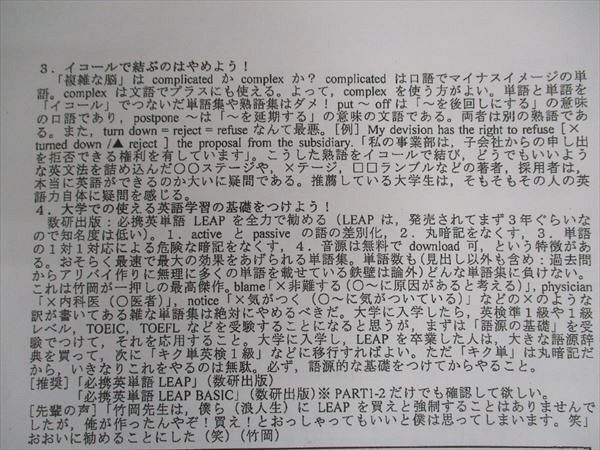 3．イコールで結ぶのはやめよう！
「複雑な脳」は complicated か complex か？ complicated は口語でマイナスイメージの単
語。complex は文語でプラスにも使える。よって，complex を使う方がよい。単語と単語を
「イコール」でつないだ単語集や熟語集はダメ！ put ～ off は「～を後回しにする」の意味
の口語であり，postpone ～は「～を延期する」の意味の文語である。両者は別の熟語であ
る。また，turn down = reject = refuse なんて最悪。［例］My devision has the right to refuse［×
turned down /▲ reject］the proposal from the subsidiary.「私の事業部は，子会社からの申し出
を拒否できる権利を有しています」。こうした熟語をイコールで結び，どうでもいいよう
な英文法を詰め込んだ○○ステージや，×テージ，□□ランプルなどの著者，採用者は，
本当に英語ができるのか大いに疑問である。推薦している大学生は，そもそもその人の英
語力自体に疑問を感じる。
4．大学での使える英語学習の基礎をつけよう！
数研出版：必携英単語 LEAP を全力で勧める（LEAP は，発売されてまず3年ぐらいな
ので知名度は低い）。1．active と passive の語の差別化，2．丸暗記をなくす，3．単語
の1対1対応による危険な暗記をなくす，4．音源は無料で download 可，という特徴があ
る。おそらく最速で最大の効果をあげられる単語集。単語数も（見出し以外も含め：過去問
からアリバイ作りに無理に多くの単語を載せている鉄壁は論外）どんな単語集に負けない。
これは竹岡が一押しの最高傑作。blame「×非難する（○～に原因があると考える）」，physician
「×内科医（○医者）」，notice「×気がつく（○～に気がついている）」などの×のような
訳が書いてある雑な単語集は絶対にやめるべきだ。大学に入学したら，英検準1級や1級
レベル，TOEIC，TOEFL などを受験することになると思うが，まずは「語源の基礎」を受
験でつけて，それを応用すること。大学に入学し，LEAP を卒業した人は，大きな語源辞
典を買って，次に「キク単英検1級」などに移行すればよい。ただ「キク単」は丸暗記だ
から，いきなりこれをやるのは無駄。必ず，語源的な基礎をつけてからやること。
［推奨］「必携英単語 LEAP」（数研出版）
「必携英単語 LEAP BASIC」（数研出版）※ PART1-2 だけでも確認して欲しい。
［先輩の声］「竹岡先生は，僕ら（浪人生）に LEAP を買えと強制することはありませんで
したが，俺が作ったんやぞ！買え！とおっしゃってもいいと僕は思ってしまいます。笑」
おおいに勧めることにした（笑）（竹岡）